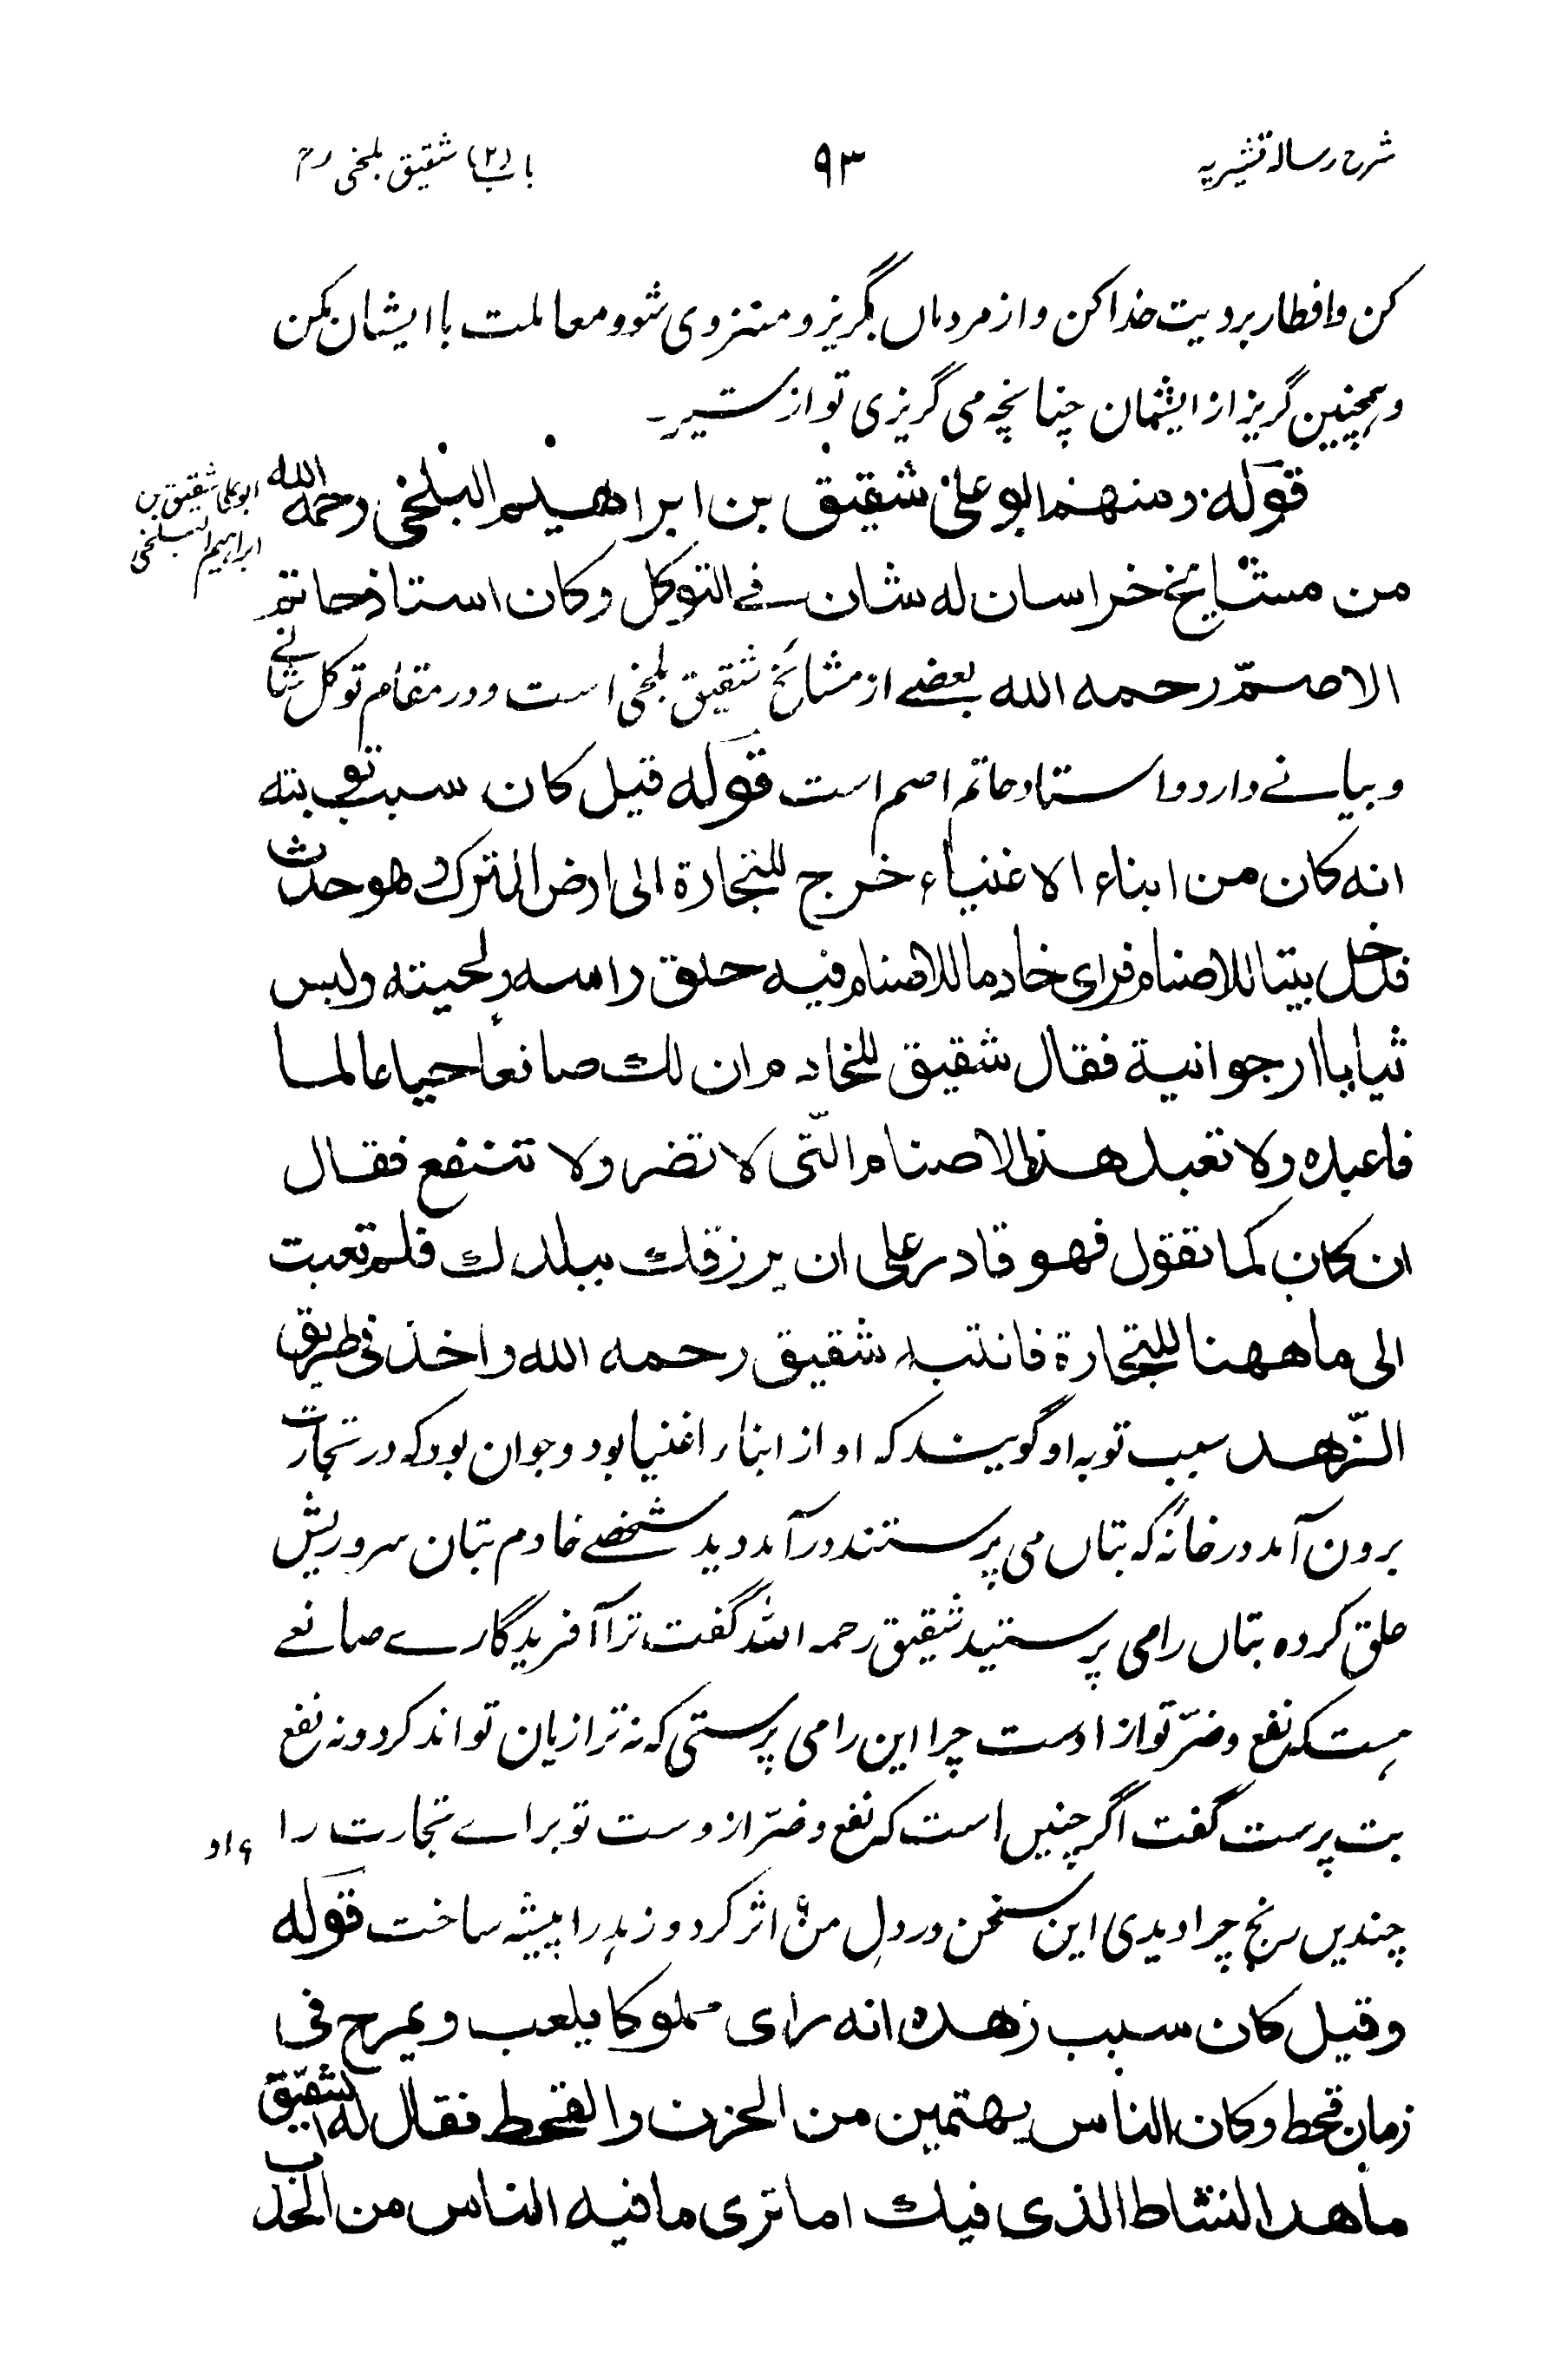 شرح رسالہ قشیریہ
۹۳
باب (۲) شقیق بلخی رح
کن و افطار بردیت خدا کن و از مردماں بگریز و منزوی شو و معاملت با ایشان مکن
و ہمچنین گریز از ایشان چنانچہ می گریزی تو از شیر۔
قولہ و منهم ابو علی شقیق بن ابراهیم البلخی رحمہ اللہ
ابو علی شقیق بن
ابراہیم البلخی
من مشایخ خراسان له شان فے التوکل و کان استاذ حاتم
الاصمّ رحمه الله بعضے از مشائخ شقیق بلخی است و در مقام توکل شانے
و بیانے دارد و استاد حاتم اصم است قوله قیل کان سبب توبته
انه کان من ابناء الاغنیاء خرج للتجارة الی ارض الترک و هو حدث
فدخل بیتا للاصنام فرای خادما للاصنام فیه حلق راسه و لحیته و لبس
ثیابا ارجوانیة فقال شقیق للخادم ان لك صانعا حیا عالما
فاعبده و لا تعبد هذه الاصنام التّی لا تضر و لا تنفع فقال
ان کان کما تقول فهو قادر علی ان یرزقك ببلدك فلم تعبت
الی ما ههنا للتجارة فانتبه شقیق رحمه الله و اخذ فی طریق
الزّهد سبب توبہ او گویند کہ او از ابناء اغنیا بود و جوان بود کہ در تجارت
برون آمد در خانۂ کہ بتاں می پرستند در آمد دید شخصے خادم بتان سر و ریش
حلق کرده بتاں را می پرستید شقیق رحمہ اللہ گفت ترا آفریدگارے صانعے
ہست کہ نفع و ضرّ تو از اوست چرا این را می پرستی کہ نہ ترا زیان تواند کرد و نہ نفع
بت پرست گفت اگر چنیں است کہ نفع و ضرّ از وست تو براے تجارت را
؍ او
چندیں رنج چرا دیدی این سخن در دل من؍ اثر کرد و زہد را پیشہ ساخت قوله
و قیل کان سبب زهده انه رای مملوکا یلعب و یمرح فی
زمان قحط و کان الناس یهتمین من الحزن و القحط فقال له شقیق
ما هذا النشاط الذی فیك اما تری ما فیه الناس من الجدب